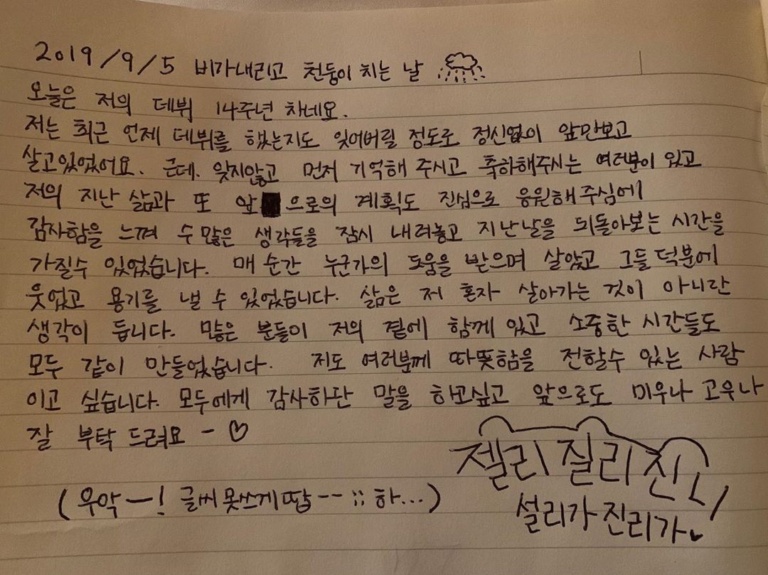 2019/9/5 비가내리고 천둥이 치는 날
오늘은 저의 데뷔 14주년 차네요.
저는 최근 언제 데뷔를 했는지도 잊어버릴 정도로 정신없이 앞만보고
살고있었어요. 근데. 잊지않고 먼저 기억해 주시고 축하해주시는 여러분이 있고
저의 지난 삶과 또 앞으로의 계획도 진심으로 응원해 주심에
감사함을 느껴 수 많은 생각들을 잠시 내려놓고 지난날을 뒤돌아보는 시간을
가질수 있었습니다. 매 순간 누군가의 도움을 받으며 살았고 그들 덕분에
웃었고 용기를 낼 수 있었습니다. 삶은 저 혼자 살아가는 것이 아니란
생각이 듭니다. 많은 분들이 저의 곁에 함께 있고 소중한 시간들도
모두 같이 만들었습니다. 저도 여러분께 따뜻함을 전할수 있는 사람
이고 싶습니다. 모두에게 감사하단 말을 하고싶고 앞으로도 미우나 고우나
잘 부탁 드려요 - ♡
젤리 질리 진리
(우악ㅡ! 글씨 못쓰게땁--;; 하...)
설리가 진리가♥